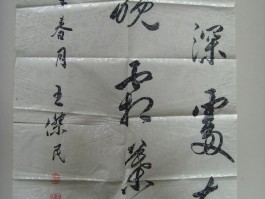 深處
晚霜葉
春月王傑民